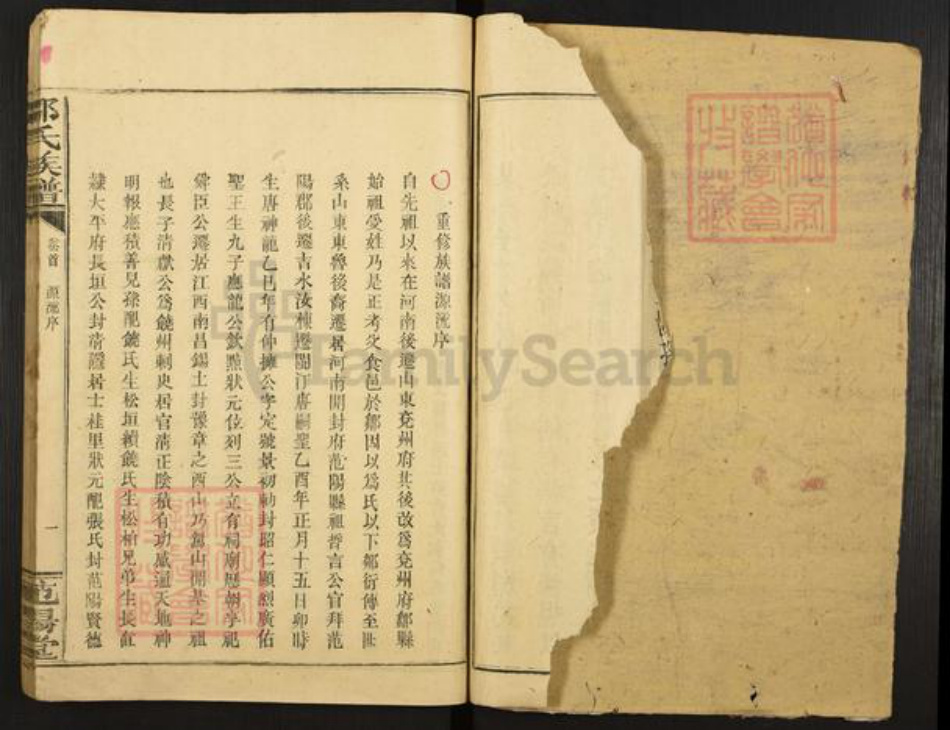 一重修族譜源流序
自先祖以來在河南後遷山東兗州府其後改為兗州府鄒縣
始祖受姓乃是正考父食邑於鄒因以為氏以下鄒衍傳至世
系山東東魯後裔遷居河南開封府范陽縣祖晉言公官拜范
陽郡後遷吉水汝棟遷閩汀唐嗣聖乙酉年正月十五日卯時
生唐神龍乙巳年有仲擁公字定號景初勅封昭仁顯烈廣佑
聖王生九子應龍公欽點狀元位列三公立有祠廟歷朝享祀
偉臣公遷居江西南昌錫土封豫章之西山乃盤山開基之祖
也長子清獻公為饒州刺史居官清正陰積有功感通天地神
明報應積善兒孫配饒氏生松垣續饒氏生松柏兄弟生長缸
隸大平府長垣公封清隱居士桂里狀元配張氏封范陽賢德
鄒氏族譜
卷首
源流序
一
范陽堂
FamilySearch